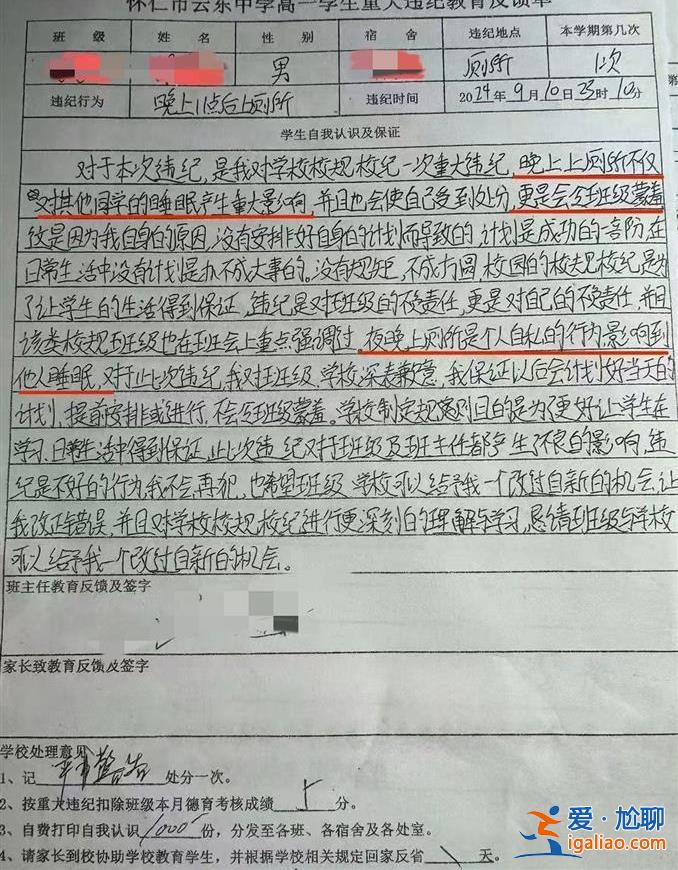 怀仁市云东中学高一学生重大违纪教育反馈单
班 级 姓 名 性 别 男 宿 舍 违纪地点 厕所 本学期第几次 1次
违纪行为 晚上11点后上厕所 违纪时间 2024年9月10日23时10分
学生自我认识及保证
对于本次违纪,是我对学校校规校纪一次重大违纪,晚上上厕所不仅
对其他同学的睡眠产生重大影响,并且也会使自己受到处分,更是会令班级蒙羞
这是因为我自身的原因,没有安排好自身的计划而导致的,计划是成功的音阶,在
日常生活中没有计划是办不成大事的。没有规矩,不成方圆,校园的校规校纪是为
了让学生的生活得到保证,违纪是对班级的不负责任,更是对自己的不负责任,并且
该类校规班级也在班会上重点强调过,夜晚上厕所是个人自私的行为,影响到
他人睡眠,对于此次违纪,我对班级、学校深表歉意,我保证以后会计划好当天的
计划,提前安排或进行,不会令班级蒙羞。学校制定规则目的是为了更好让学生在
学习、日常生活中得到保证,此次违纪对于班级及班主任都产生了不良的影响,违
纪是不好的行为,我不会再犯,也希望班级、学校可以给予我一个改过自新的机会,让
我改正错误,并且对学校校规、校纪进行更深刻的理解与学习,恳请班级与学校
可以给予我一个改过自新的机会。
班主任教育反馈及签字
家长致教育反馈及签字
学校处理意见
1、记 严重警告 处分一次。
2、按重大违纪扣除班级本月德育考核成绩 5 分。
3、自费打印自我认识 1000 份,分发至各班、各宿舍及各处室。
4、请家长到校协助学校教育学生,并根据学校相关规定回家反省 \ 天。
爱·尬聊
igaliao.com